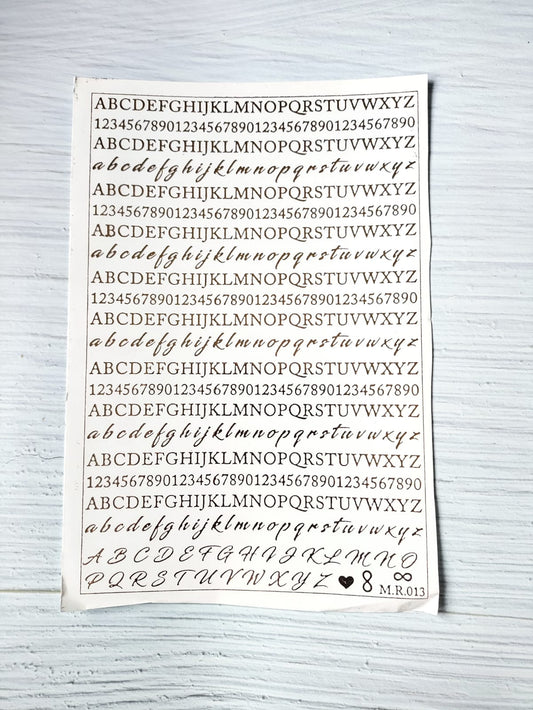 ABCDEFGHIJKLMNOPQRSTUVWXYZ
123456789012345678901234567890
ABCDEFGHIJKLMNOPQRSTUVWXYZ
abcdefghijklmnopqrstuvwxyz
ABCDEFGHIJKLMNOPQRSTUVWXYZ
123456789012345678901234567890
ABCDEFGHIJKLMNOPQRSTUVWXYZ
abcdefghijklmnopqrstuvwxyz
ABCDEFGHIJKLMNOPQRSTUVWXYZ
123456789012345678901234567890
ABCDEFGHIJKLMNOPQRSTUVWXYZ
abcdefghijklmnopqrstuvwxyz
ABCDEFGHIJKLMNOPQRSTUVWXYZ
123456789012345678901234567890
ABCDEFGHIJKLMNOPQRSTUVWXYZ
abcdefghijklmnopqrstuvwxyz
ABCDEFGHIJKLMNOPQRSTUVWXYZ
123456789012345678901234567890
ABCDEFGHIJKLMNOPQRSTUVWXYZ
abcdefghijklmnopqrstuvwxyz
A B C D E F G H I J K L M N O
P Q R S T U V W X Y Z ♥ 8 ∞
M.R.013